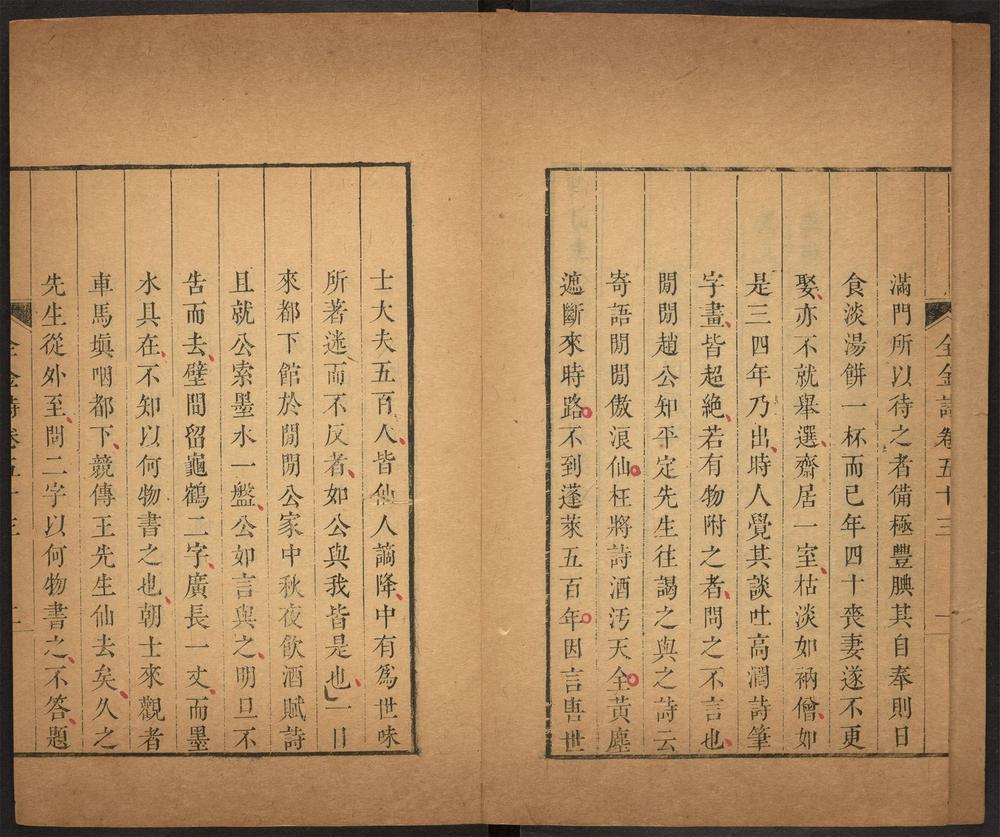 全金詩卷五十三 一
滿門所以待之者備極豐腆其自奉則日
食淡湯餅一杯而已年四十喪妻遂不更
娶亦不就舉選齋居一室枯淡如衲僧如
是三四年乃出時人覺其談吐高濶詩筆
字畫皆超絶若有物附之者問之不言也
閒閒趙公知平定先生往謁之與之詩云
寄語閒閒傲浪仙枉將詩酒汚天全黃塵
遮斷來時路不到蓬萊五百年因言唐世
士大夫五百人皆仙人謫降中有爲世味
所著迷而不反者如公與我皆是也一日
來都下館於閒閒公家中秋夜飲酒賦詩
且就公索墨水一盤公如言與之明旦不
告而去壁間留龜鶴二字廣長一丈而墨
水具在不知以何物書之也朝士來觀者
車馬塡咽都下競傳王先生仙去矣久之
先生從外至問二字以何物書之不答題
全金詩卷五十三 二